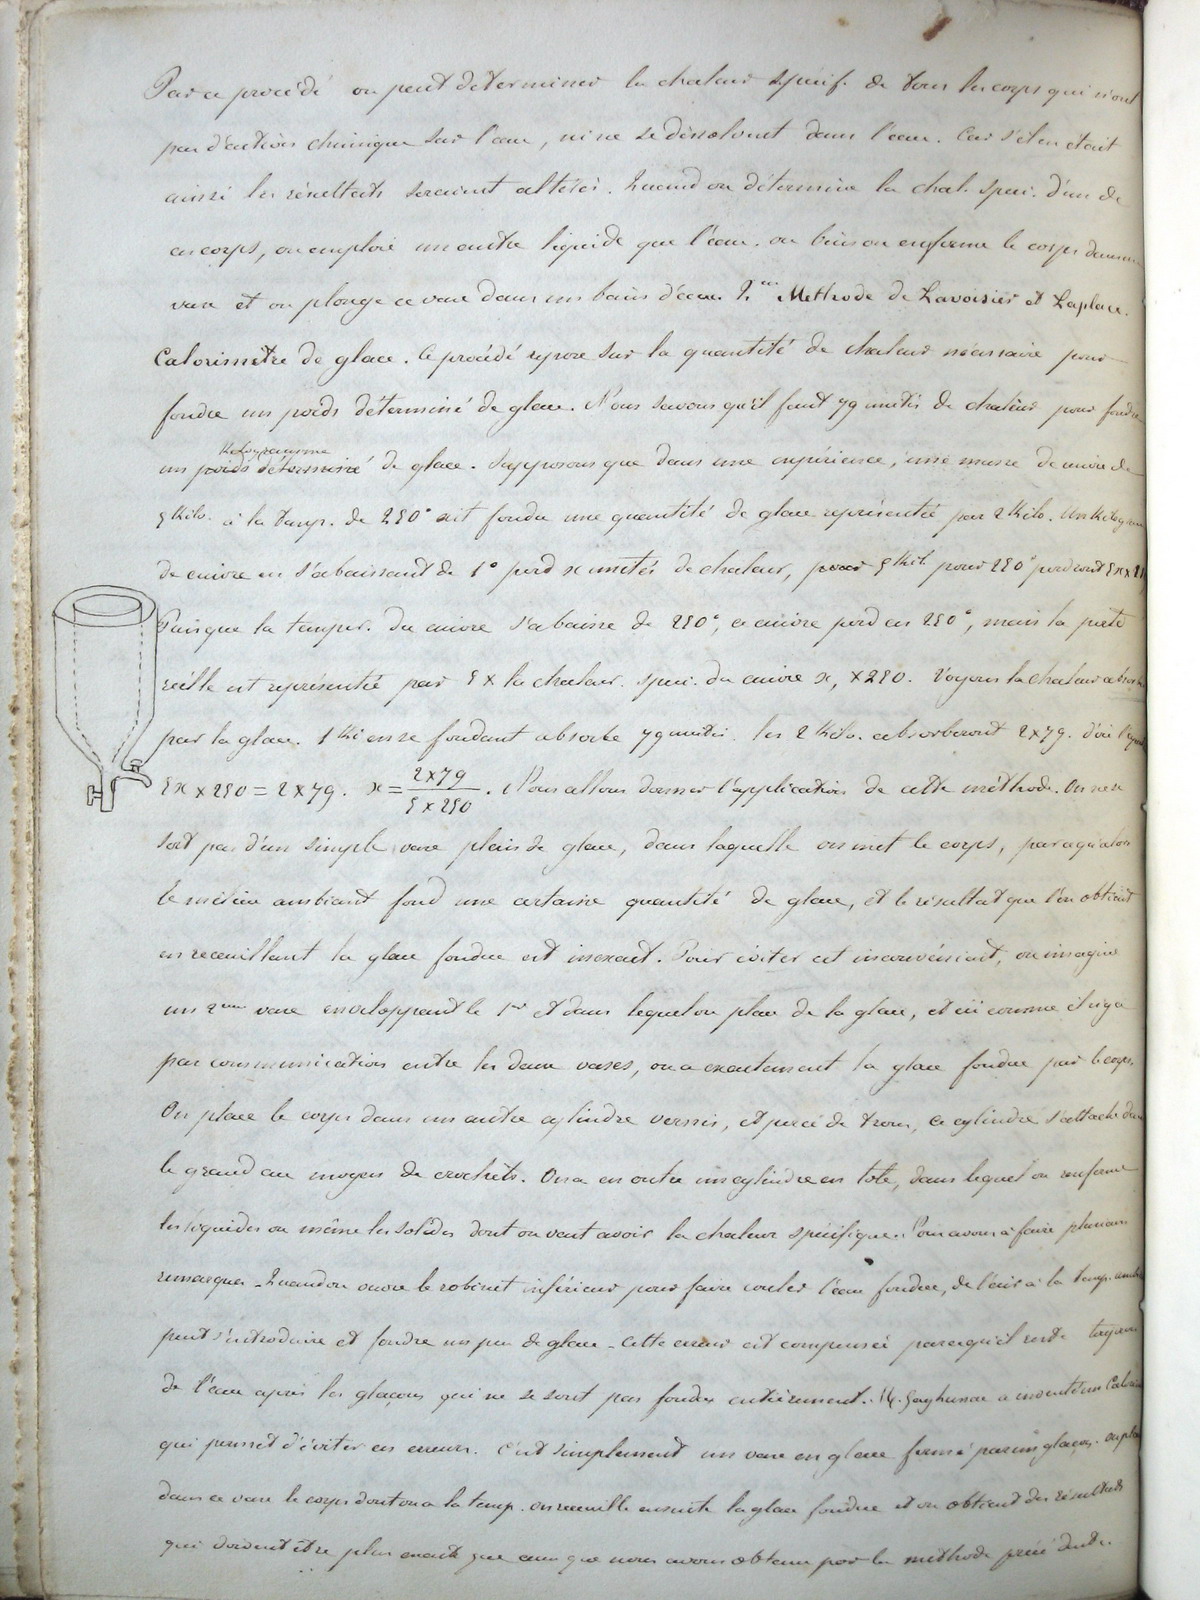 Par ce procédé on peut determiner la chaleur spécif. de tous les corps qui n'ont
pas d'action chimique sur l'eau, ni ne se dissolvent dans l'eau. Car s'il en était
ainsi les résultats seraient altérés. Quand on détermine la chal. spéci. d'un de
ces corps, on emploie un autre liquide que l'eau. ou bien on enferme le corps dans un
vase et on plonge ce vase dans un bain d'eau. 2.me Methode de Lavoisier et Laplace.
Calorimètre de glace. Ce procédé repose sur la quantité de chaleur nécessaire pour
fondre un poids déterminé de glace. Nous savons qu'il faut 79 unités de chaleur pour fondre
Kilogramme
un poids déterminé de glace. Supposons que dans une expérience, une masse de cuivre de
5 Kilo. à la temp. de 250° ait fondu une quantité de glace représentée par 2 Kilo. Un Kilogr
de cuivre en s'abaissant de 1° perd x unités de chaleur, pour 5 Kil. pour 250° perdront 5x x
Puisque la temper. du cuivre s'abaisse de 250°, ce cuivre perd en 250°, mais la perte
réelle est représentée par 5 x la chaleur. spéci. du cuivre x, x 250. Voyons la chaleur absor
par la glace. 1 Ki en se fondant absorbe 79 unités. les 2 Kilo. absorberont 2x79. d'où l'équat
5x x 250 = 2 x 79. x = 2x79 / 5 x 250. Nous allons donner l'application de cette méthode. On ne se
sert pas d'un simple vase plein de glace, dans laquelle on met le corps, parcequ'alors
le milieu ambiant fond une certaine quantité de glace, et le résultat que l'on obtient
en receuillant la glace fondue est inexact. Pour éviter cet inconvénient, on imagine
un 2me vase enveloppant le 1er et dans lequel on place de la glace, et ici comme il n'y a
pas communication entre les deux vases, on a exactement la glace fondue par le corps.
On place le corps dans un autre cylindre vernis, et percé de trous, ce cylindre s'attache dans
le grand au moyen de crochets. On a en outre un cylindre en tôle, dans lequel on renferme
les liquides ou même les solides dont on veut avoir la chaleur spécifique. Nous avons à faire plusieurs
remarques - Quand on ouvre le robinet inférieur pour faire couler l'eau fondue, de l'air à la temp. ambi
peut s'introduire et fondre un peu de glace - cette erreur est compensée parcequ'il reste toujours
de l'eau après les glaçons qui ne se sont pas fondus entièrement. M. Gaylussac a inventé un Calori
qui permet d'éviter ces erreurs. c'est simplement un vase en glace fermé par un glaçon. on place
dans ce vase le corps dont on a la temp. on receuille ensuite la glace fondue et on obtient des résultats
qui doivent être plus exacts que ceux que nous avons obtenu par la methode précédente.